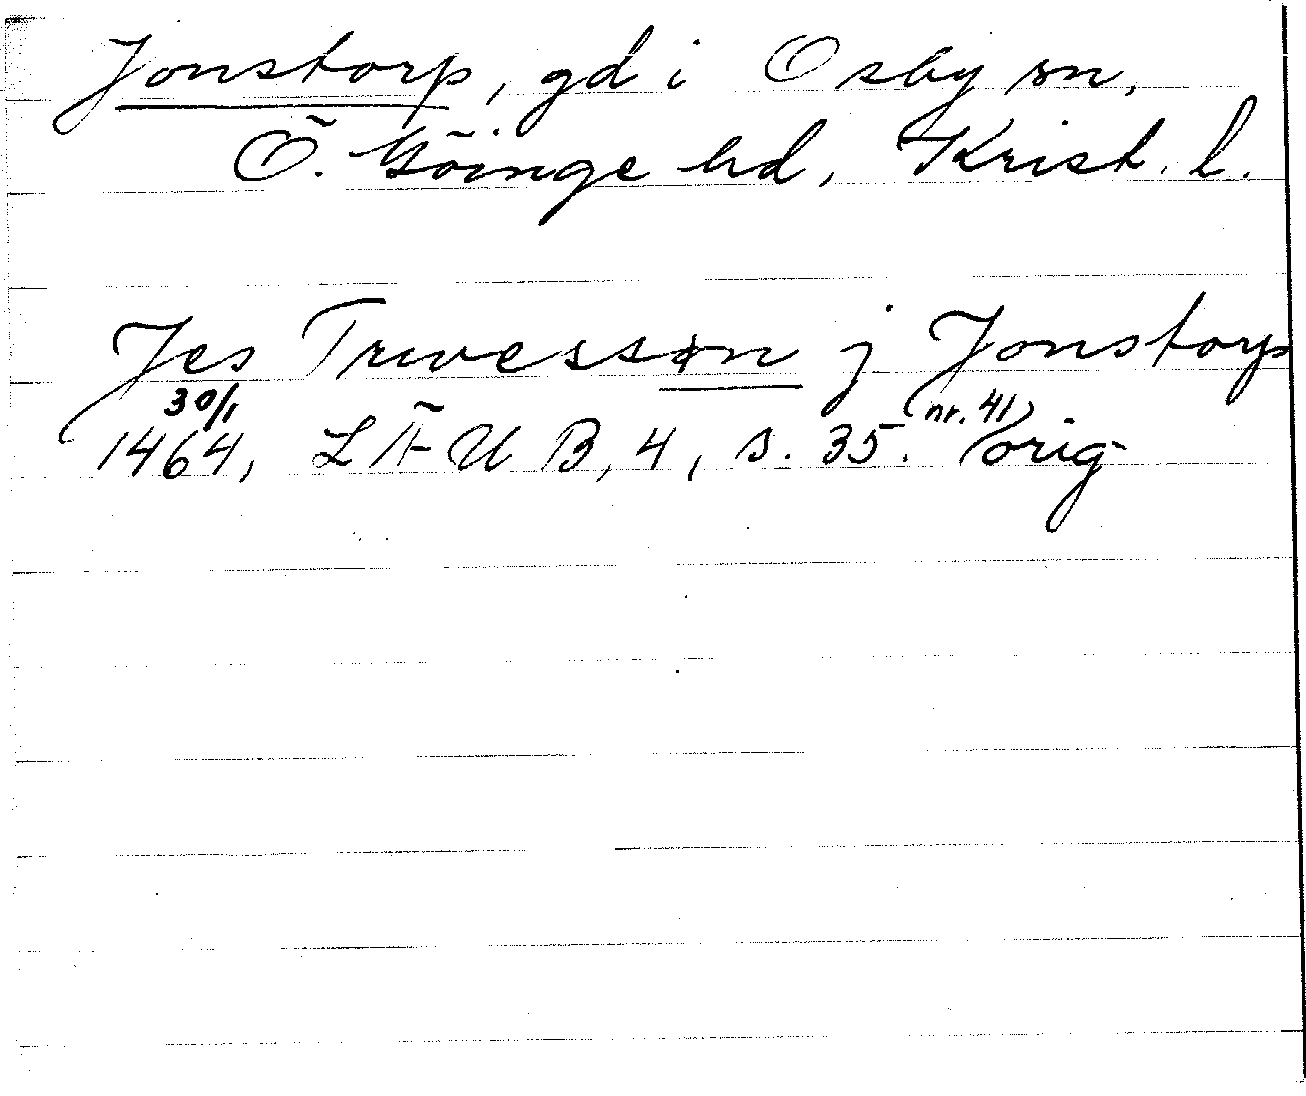 Jonstorp, gd i Osby sn,
Ö. Göinge hd, Krist. l.
Jes Truvessøn j Jonstorp
30/1 (nr. 41)
1464, LÄUB, 4, s. 35. orig